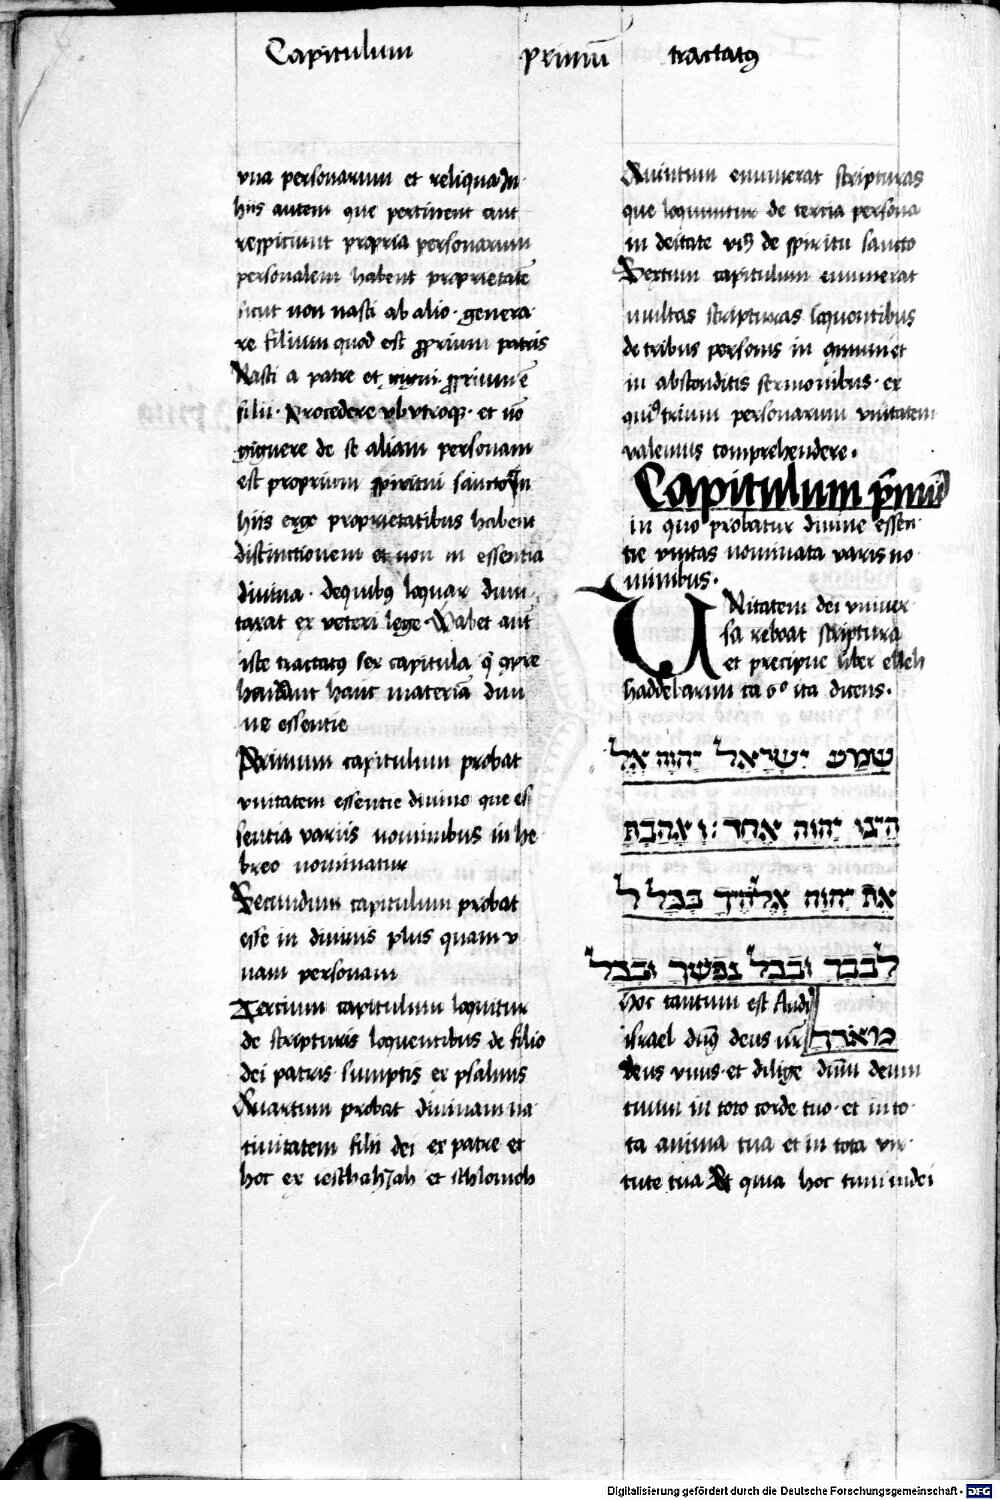 Capitulum primum tractatus
vna personarum et reliqua In
hiis autem que pertinent aut
respiciunt propria personarum
personalem habent proprietatē
sicut non nasci ab alio · genera
re filium quod est ꝓprium patris
Nasci a patre et ꝓprium ē
filii · Procedere ab vtroqꝫ · et nō
gignere de se aliam personam
est proprium spiritui sancto In
hiis ergo proprietatibus habent
distinctionem et non in essentia
diuina · de quibꝰ loquar dum
taxat ex veteri lege · Habet aut̄
iste tractatꝰ sex capitula q̄
hanc materiā diui
ne essentie
Primum capitulum probat
vnitatem essentie diuine que es
sentia variis nominibus in he
breo nominatur
Secundum capitulum probat
esse in diuinis plus quam v
nam personam
Tercium capitulum loquitur
de scripturis loquentibus de filio
dei patris sumptis ex psalmis
Quartum probat diuinam na
tiuitatem filii dei ex patre et
hoc ex et schlomoh
Quintum enumerat scripturas
que loquuntur de tercia persona
in deitate de spiritu sancto
Sextum capitulum enumerat
multas scripturas loquentibus
de tribus personis in et
in absconditis sermonibus · ex
trium personarum vnitatem
valemus comprehendere ·
Capitulum pͥmū
in quo probatur diuine essen
tie vnitas nominata variis no
minibus ·
VNitatem dei vniuer
sa reboat scriptura
et precipue liber elleh
haddebarim ca 6º ita dicens ·
שְׁמַע יִשְׂרָאֵל יְהוָה אֱלֹ
הֵינוּ יְהוָה אֶחָד ׃ וְאָהַבְתָּ
אֵת יְהוָה אֱלֹהֶיךָ בְּכָל ל
לבבך ובכל נפשך ובכל
מאדך
hoc tantum est Audi
israel dn̄s deus nr̄
deus vnus · et dilige dn̄m deum
tuum in toto corde tuo · et in to
ta anima tua et in tota vir
tute tua Et quia hoc tum iudei